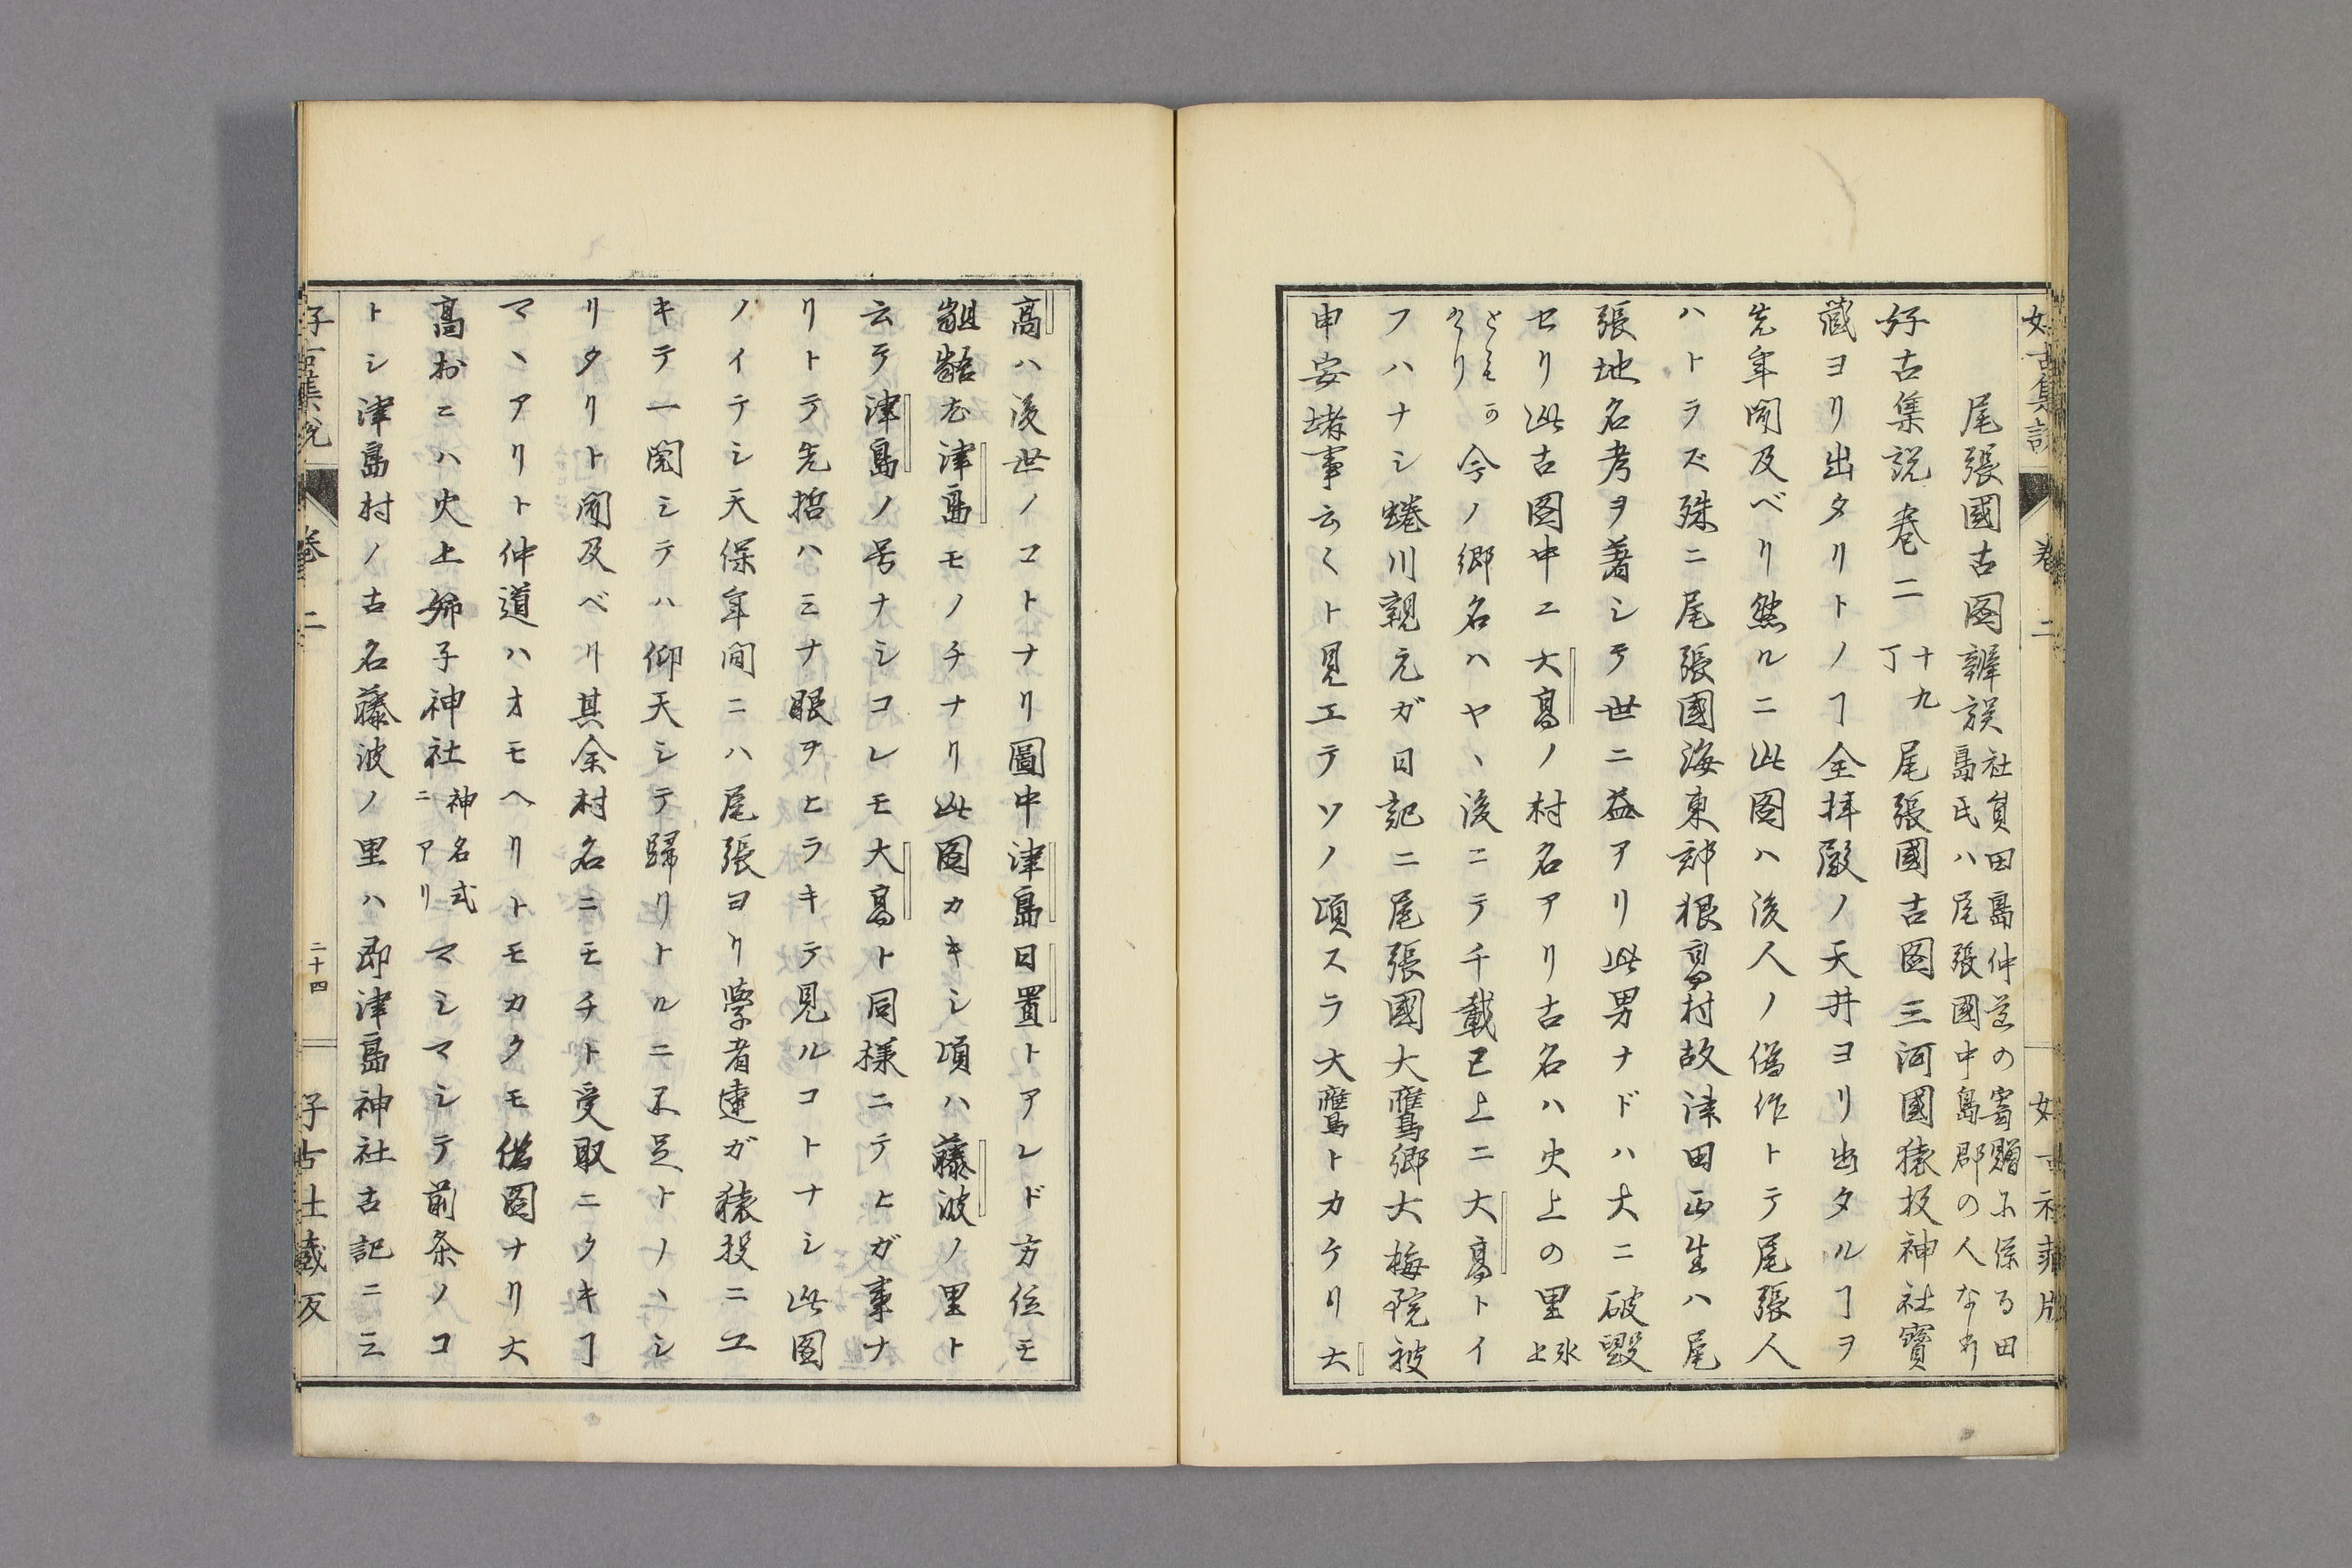 尾張國古图辨誤社員田島仲道の寄贈ニ係る田
島氏ハ尾張國中島郡の人なり
好古集説 巻二 十九丁 尾張國古图三河國猿投神社寳
藏ヨリ出タリトノヿ全拝殿ノ天井ヨリ出タルヿヲ
先年聞及ベリ然ルニ此图ハ後人ノ偽作トテ尾張人
ハトラズ殊ニ尾張國海東郡根高村故津田正生ハ尾
張地名考ヲ著シテ世ニ益アリ此男ナドハ大ニ破毀
セリ此古图中ニ大高ノ村名アリ古名ハ火上の里氷上
ともかけり今ノ郷名ハヤヽ後ニテ千載已上ニ大高トイ
フハナシ蜷川親元ガ日記ニ尾張國大鷹郷大梅院被
申安堵事云々ト見エテソノ頃スラ大鷹トカケリ大
高ハ後世ノコトナリ圖中津島日置トアレド方位モ
齟齬尤津島モノチナリ此图カキシ頃ハ藤波ノ里ト
云テ津島ノ号ナシコレモ大高ト同様ニテヒガ事ナ
リトテ先哲ハミナ眼ヲヒラキテ見ルコトナシ此图
ノイテシ天保年間ニハ尾張ヨリ學者達ガ猿投ニユ
キテ一閲シテハ仰天シテ歸リトルニ不足トノヽシ
リタリト聞及ベリ其余村名ニモチト受取ニクキヿ
マヽアリト仲道ハオモヘリトモカクモ偽图ナリ大
高おニハ火上姉子神社神名式ニアリマシマシテ前条ノコ
トシ津島村ノ古名藤波ノ里ハ即津島神社古記ニミ
好古集説 巻二 二十四 好古社藏反